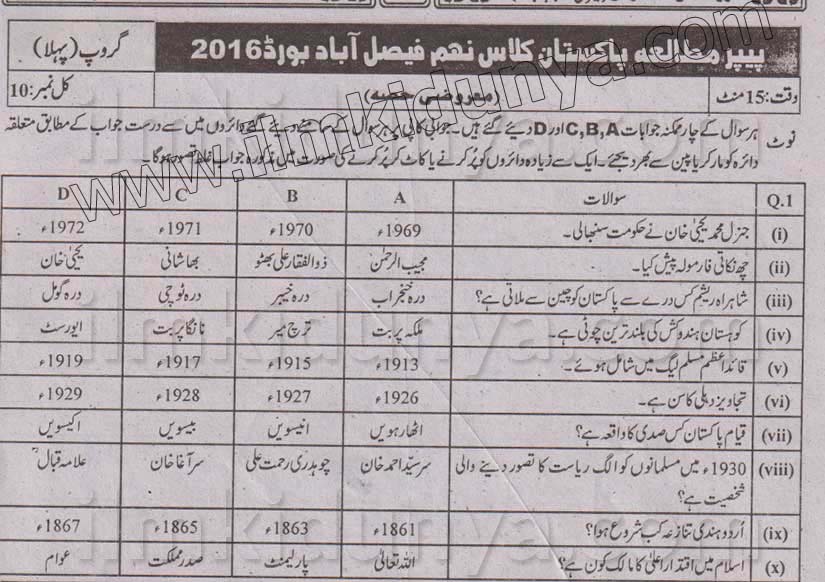 گروپ (پہلا)
پیپر مطالعہ پاکستان کلاس نہم فیصل آباد بورڈ 2016
وقت: 15 منٹ (معروضی حصہ) کل نمبر: 10
نوٹ ہر سوال کے چار ممکنہ جوابات C,B,A اور D دیئے گئے ہیں۔ جوابی کاپی پر ہر سوال کے سامنے دیئے گئے دائروں میں سے درست جواب کے مطابق متعلقہ
دائرہ کو مارکر یا پین سے بھر دیجئے۔ ایک سے زیادہ دائروں کو پُر کرنے یا کاٹ کر پُر کرنے کی صورت میں مذکورہ جواب غلط تصور ہوگا۔
Q.1 سوالات A B C D
(i) جنرل محمد یحییٰ خان نے حکومت سنبھالی۔ 1969ء 1970ء 1971ء 1972ء
(ii) چھ نکاتی فارمولہ پیش کیا۔ مجیب الرحمٰن ذوالفقار علی بھٹو بھاشانی یحییٰ خان
(iii) شاہراہ ریشم کس درے سے پاکستان کو چین سے ملاتی ہے؟ درہ خنجراب درہ خیبر درہ ٹوچی درہ گومل
(iv) کوہستان ہندوکش کی بلند ترین چوٹی ہے۔ ملکہ پربت ترچ میر نانگا پربت ایورسٹ
(v) قائداعظم مسلم لیگ میں شامل ہوئے۔ 1913ء 1915ء 1917ء 1919ء
(vi) تجاویز دہلی کا سن ہے۔ 1926ء 1927ء 1928ء 1929ء
(vii) قیام پاکستان کس صدی کا واقعہ ہے؟ اٹھارہویں انیسویں بیسویں اکیسویں
(viii) 1930ء میں مسلمانوں کو الگ ریاست کا تصور دینے والی سرسیّد احمد خان چوہدری رحمت علی سر آغا خان علامہ اقبال
شخصیت ہے؟
(ix) اُردو ہندی تنازعہ کب شروع ہوا؟ 1861ء 1863ء 1865ء 1867ء
(x) اسلام میں اقتدار اعلیٰ کا مالک کون ہے؟ اللہ تعالیٰ پارلیمنٹ صدر مملکت عوام
www.ilmkidunya.com
ilmkidunya.com
ilmkidunya.com
ilmkidunya.com